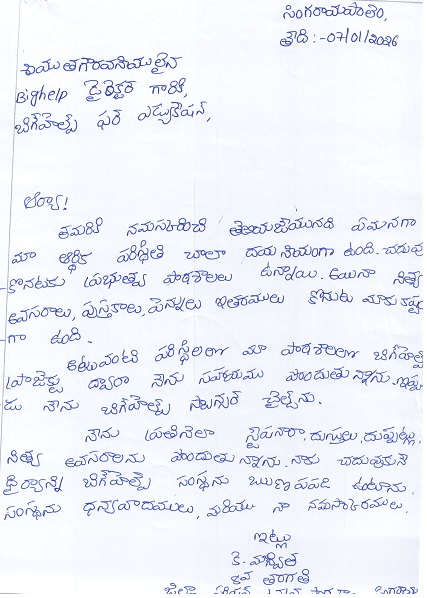 సింగరాయపాలెం,
తేది :- 07/01/2026
శ్రీయుత గౌరవనీయులైన
Bighelp డైరెక్టర్ గారికి,
బిగ్‌హెల్ప్ ఫర్ ఎడ్యుకేషన్,
ఆర్యా!
తమరికి నమస్కరించి తెలియజేయునది ఏమనగా
మా ఆర్థిక పరిస్థితి చాలా దయనీయంగా ఉంది. చదువు
కొనటకు ప్రభుత్వ పాఠశాలలు ఉన్నాయి. అయినా నిత్య
అవసరాలు, పుస్తకాలు, పెన్నులు ఇతరములు కొనుట మాకు కష్టం
గా ఉంది.
అటువంటి పరిస్థితిలలో మా పాఠశాలలో బిగ్‌హెల్ప్
ప్రాజెక్టు ద్వారా నేను సహాయము పొందుతున్నాను. ఇప్పు
డు నేను బిగ్‌హెల్ప్ స్పాన్సర్ చైల్డ్‌ను.
నేను ప్రతినెలా స్టైఫనారా, దుస్తులు, దుప్పట్లు,
నిత్య అవసరాలను పొందుతున్నాను. నాకు చదువుకునే
ధైర్యాన్ని బిగ్‌హెల్ప్ సంస్థను ఋణపపడి ఉంటాను.
సంస్థను ధన్యవాదములు, మరియు నా నమస్కారములు.
ఇట్లు
కె.
8వ తరగతి
జిల్లా